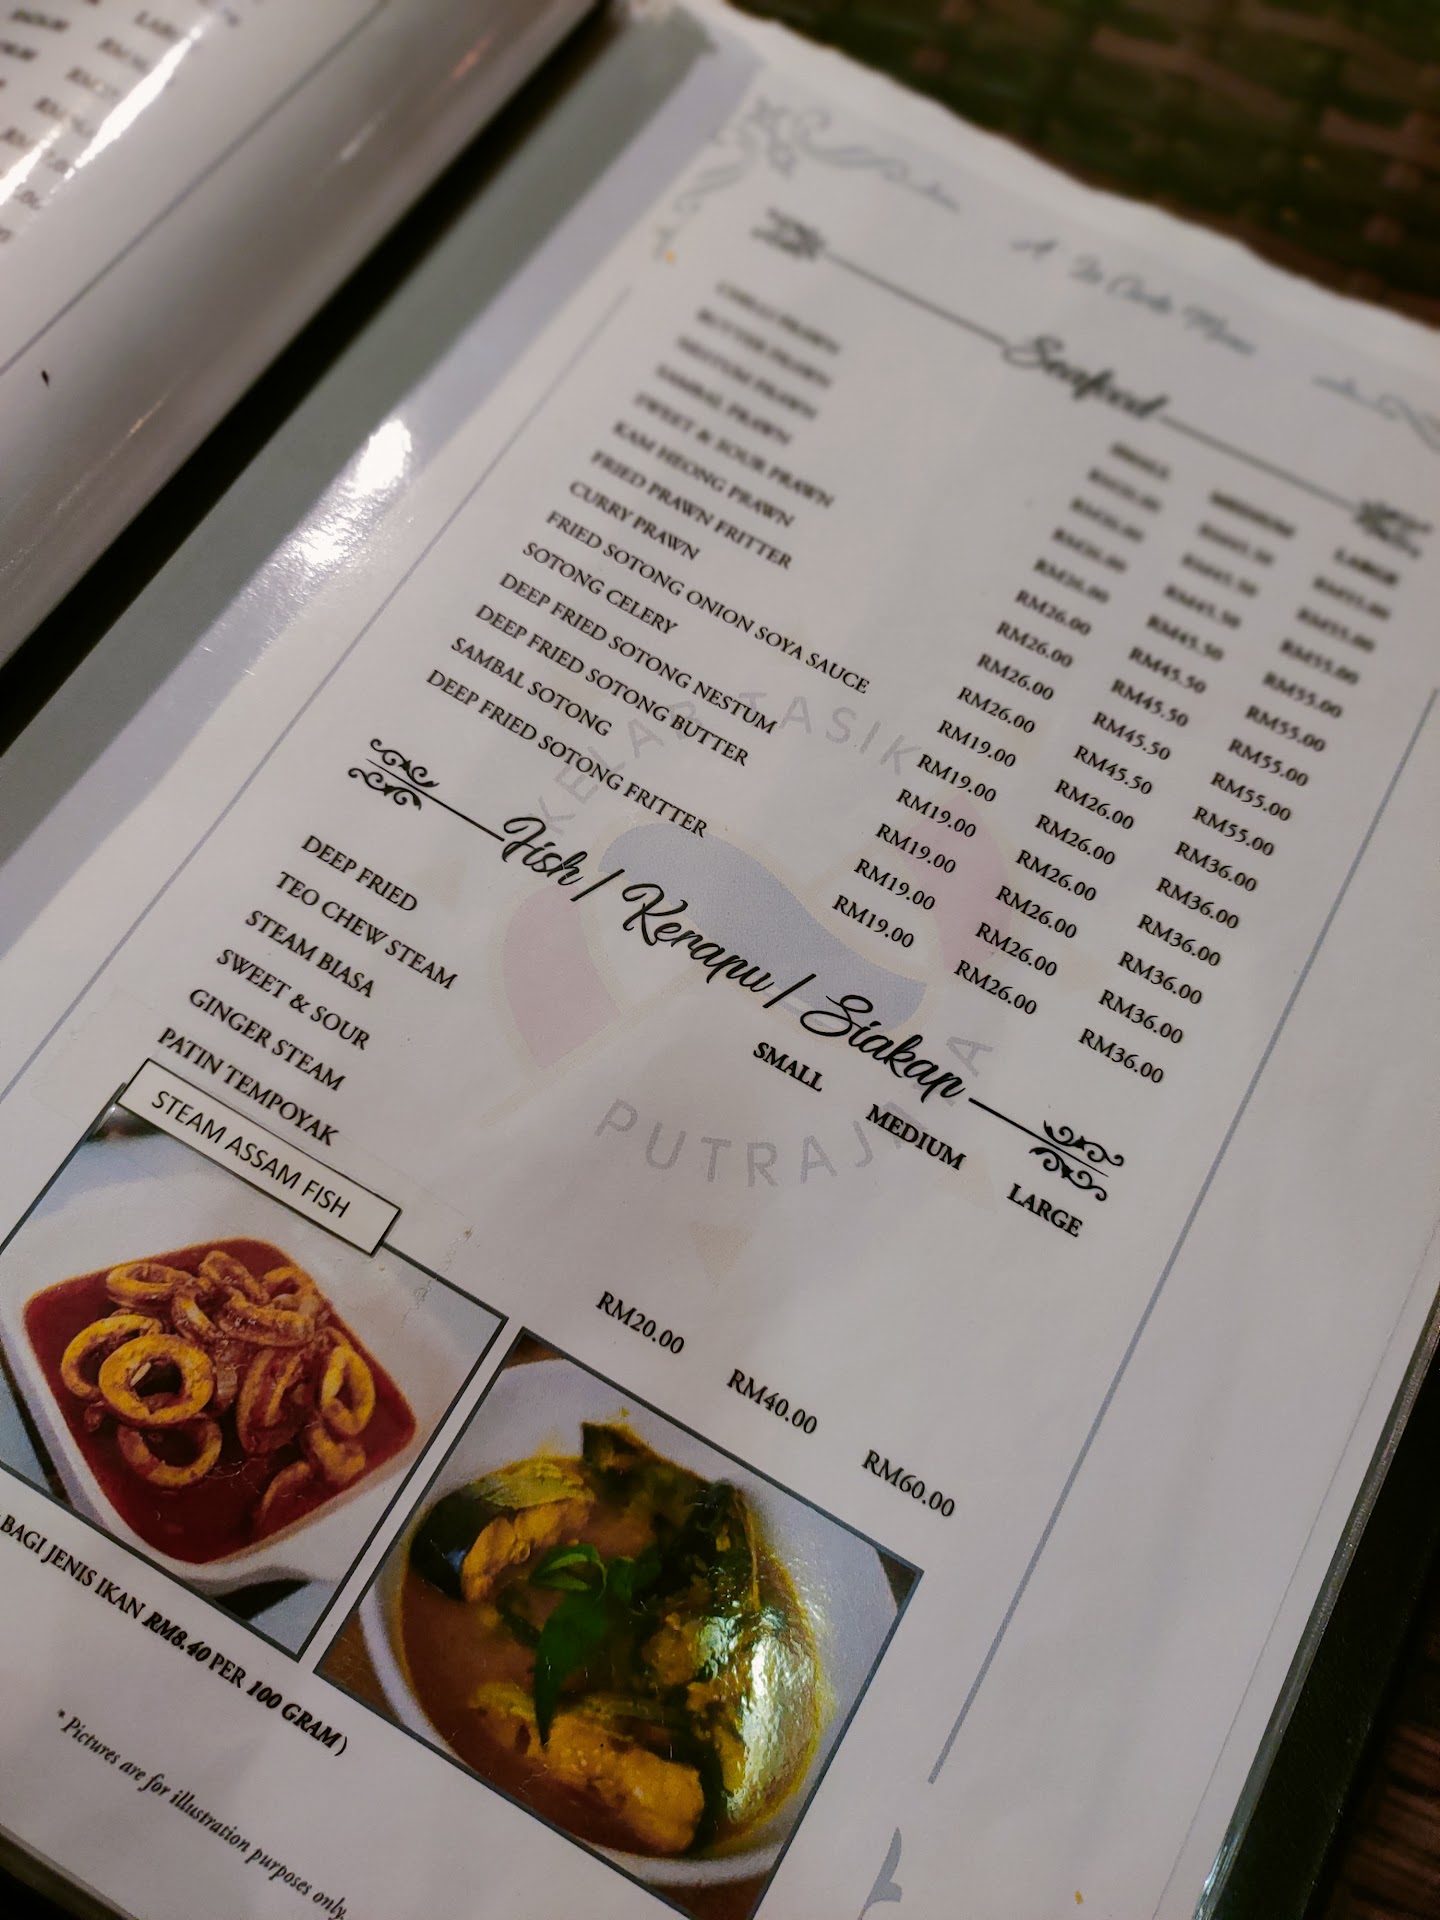 A La Carte Menu
Seafood
SMALL MEDIUM LARGE
CHILLI PRAWN RM26.00 RM45.50 RM55.00
BUTTER PRAWN RM26.00 RM45.50 RM55.00
NESTUM PRAWN RM26.00 RM45.50 RM55.00
SAMBAL PRAWN RM26.00 RM45.50 RM55.00
SWEET & SOUR PRAWN RM26.00 RM45.50 RM55.00
KAM HEONG PRAWN RM26.00 RM45.50 RM55.00
FRIED PRAWN FRITTER RM26.00 RM45.50 RM55.00
CURRY PRAWN RM26.00 RM45.50 RM55.00
FRIED SOTONG ONION SOYA SAUCE RM19.00 RM26.00 RM36.00
SOTONG CELERY RM19.00 RM26.00 RM36.00
DEEP FRIED SOTONG NESTUM RM19.00 RM26.00 RM36.00
DEEP FRIED SOTONG BUTTER RM19.00 RM26.00 RM36.00
SAMBAL SOTONG RM19.00 RM26.00 RM36.00
DEEP FRIED SOTONG FRITTER RM19.00 RM26.00 RM36.00
KELAB TASIK
PUTRAJAYA
Fish / Kerapu / Siakap
SMALL MEDIUM LARGE
DEEP FRIED
TEO CHEW STEAM
STEAM BIASA
SWEET & SOUR
GINGER STEAM
PATIN TEMPOYAK RM20.00 RM40.00 RM60.00
STEAM ASSAM FISH
BAGI JENIS IKAN RM8.40 PER 100 GRAM )
* Pictures are for illustration purposes only.